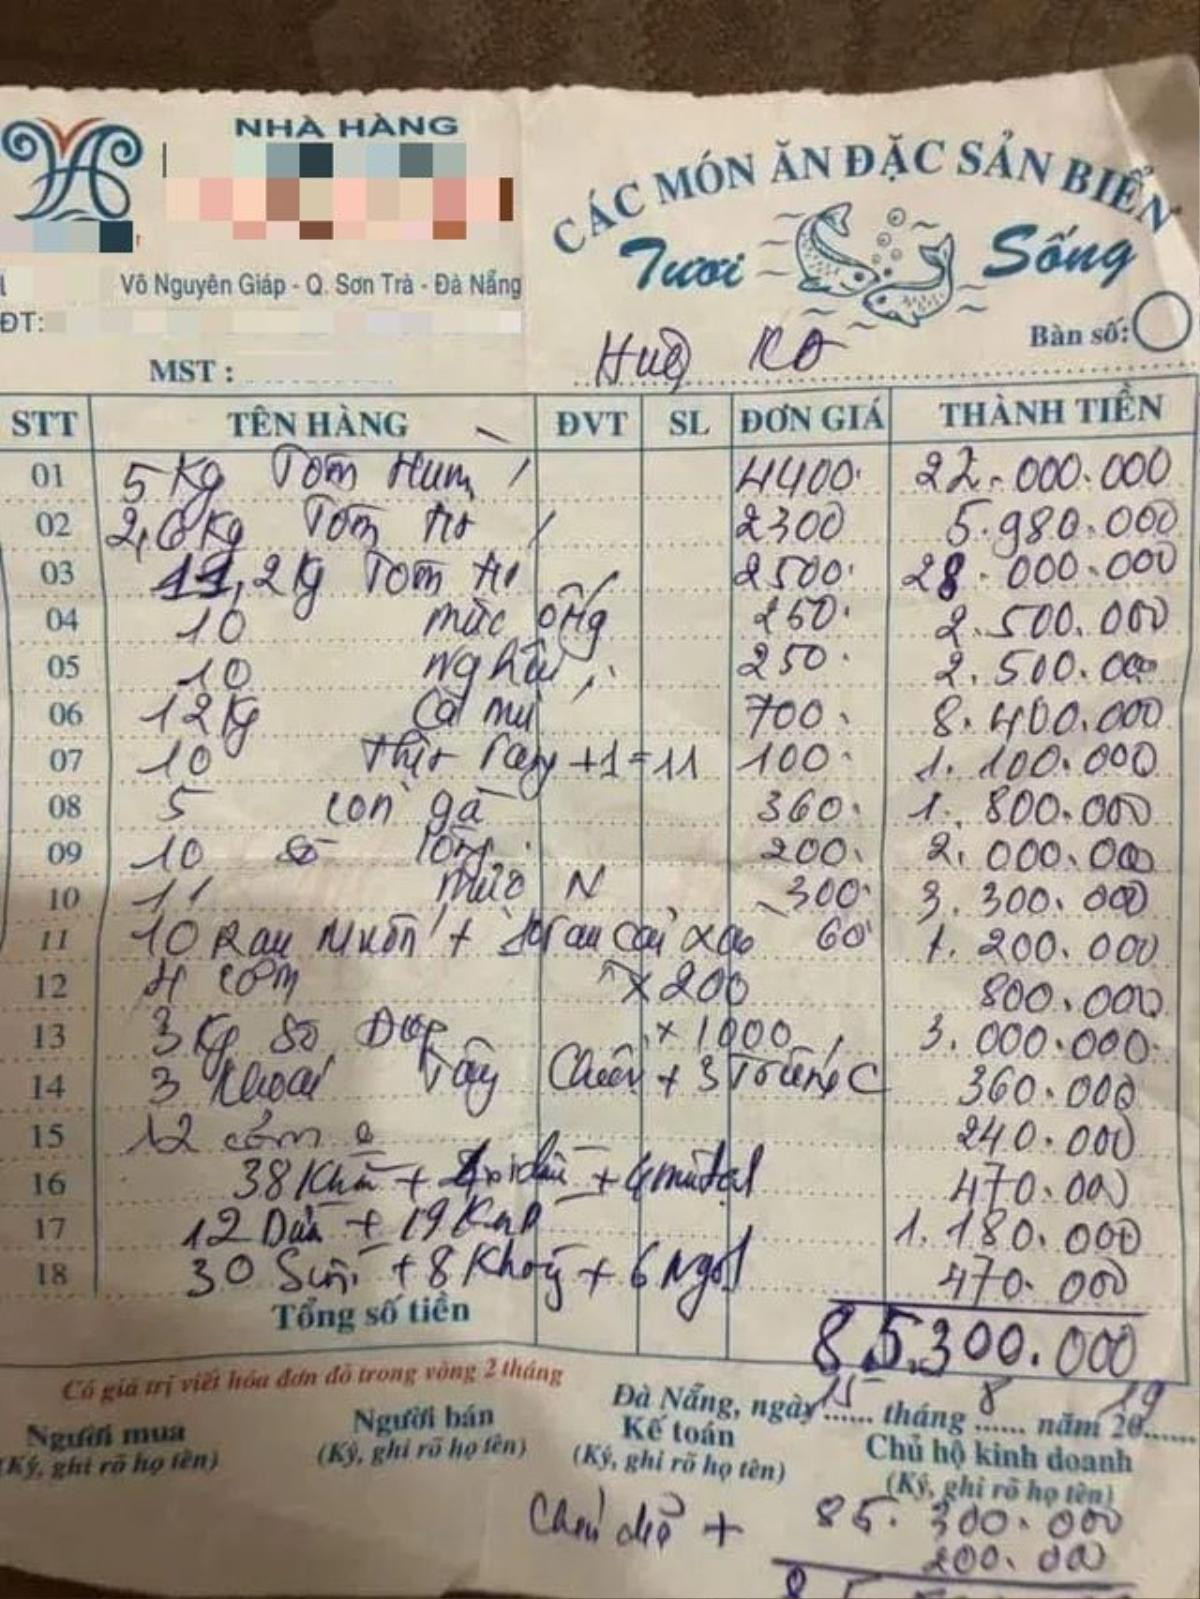 NHÀ HÀNG
CÁC MÓN ĂN ĐẶC SẢN BIỂN
Tươi Sống
Võ Nguyên Giáp - Q. Sơn Trà - Đà Nẵng
ĐT:
Bàn số:
MST :
STT TÊN HÀNG ĐVT SL ĐƠN GIÁ THÀNH TIỀN
01 5 Kg Tôm Hum 4400 22.000.000
02 2,6 Kg Tôm 2300 5.980.000
03 11,2 Kg Tôm 2500 28.000.000
04 10 mức ống 250 2.500.000
05 10 Nghêu 250 2.500.000
06 12 Kg Cá mú 700 8.400.000
07 10 Thịt +1=11 100 1.100.000
08 5 con gà 360 1.800.000
09 10 Sò lông 200 2.000.000
10 11 mức N 300 3.300.000
11 10 Rau Muốn + 10 rau cải 60 1.200.000
12 4 cơm x 200 800.000
13 3 Kg Sò x 1000 3.000.000
14 3 Khoai Tây Chiên + 3 Trứng C 360.000
15 12 cơm 240.000
16 38 Khăn + + 470.000
17 12 Dừa + 19 1.180.000
18 30 + 8 + 6 Ngọt 470.000
Tổng số tiền 85.300.000
Có giá trị viết hóa đơn đỏ trong vòng 2 tháng
Đà Nẵng, ngày 15 tháng 8 năm 2019
Người mua Người bán Kế toán Chủ hộ kinh doanh
(Ký, ghi rõ họ tên) (Ký, ghi rõ họ tên) (Ký, ghi rõ họ tên) (Ký, ghi rõ họ tên)
+ 85.300.000
200.000